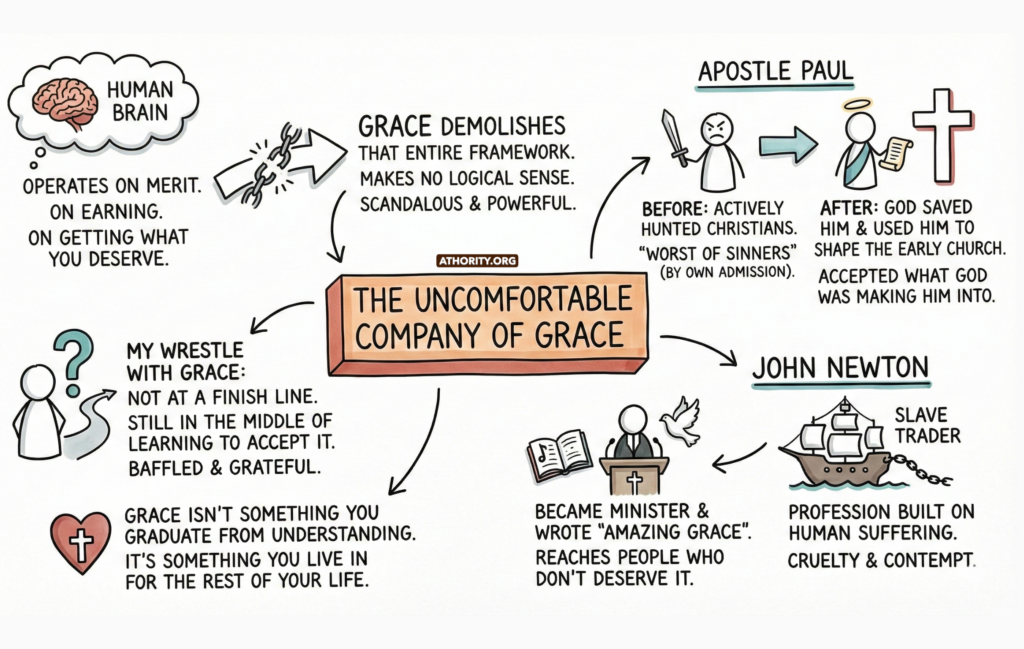 HUMAN
BRAIN
OPERATES ON MERIT.
ON EARNING.
ON GETTING WHAT
YOU DESERVE.
GRACE DEMOLISHES
THAT ENTIRE FRAMEWORK.
MAKES NO LOGICAL SENSE.
SCANDALOUS & POWERFUL.
APOSTLE PAUL
BEFORE: ACTIVELY
HUNTED CHRISTIANS.
"WORST OF SINNERS"
(BY OWN ADMISSION).
AFTER: GOD SAVED
HIM & USED HIM TO
SHAPE THE EARLY CHURCH.
ACCEPTED WHAT GOD
WAS MAKING HIM INTO.
ATHORITY.ORG
THE UNCOMFORTABLE
COMPANY OF GRACE
MY WRESTLE
WITH GRACE:
NOT AT A FINISH LINE.
STILL IN THE MIDDLE OF
LEARNING TO ACCEPT IT.
BAFFLED & GRATEFUL.
JOHN NEWTON
SLAVE
TRADER
PROFESSION BUILT ON
HUMAN SUFFERING.
CRUELTY & CONTEMPT.
BECAME MINISTER &
WROTE "AMAZING GRACE".
REACHES PEOPLE WHO
DON'T DESERVE IT.
GRACE ISN'T SOMETHING YOU
GRADUATE FROM UNDERSTANDING.
IT'S SOMETHING YOU LIVE IN
FOR THE REST OF YOUR LIFE.